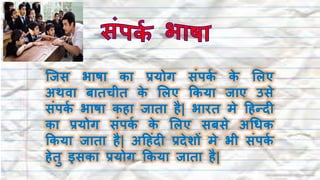 संपर्क भाषा
जिस भाषा का प्रयोग संपर्क के लिए
अथवा बातचीत के लिए किया जाए उसे
संपर्क भाषा कहा जाता है| भारत मे हिन्दी
का प्रयोग संपर्क के लिए सबसे अधिक
किया जाता है| अहिंदी प्रदेशों मे भी संपर्क
हेतु इसका प्रयोग किया जाता है|